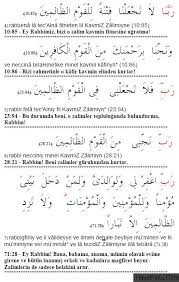 رَبَّنَا لَا تَجْعَلْنَا فِتْنَةً لِلْقَوْمِ الظَّالِمِينَ (10:85)
rabbenâ lâ tec'Alnâ fitneten lil KavmiZ ZâlimiYne (10:85)
10:85 - Ey Rabbimiz, bizi o zalim kavmin fitnesine uğratma!
وَنَجِّنَا بِرَحْمَتِكَ مِنَ الْقَوْمِ الْكَافِرِينَ
ve neccinâ birahmetike minel kavmil kâfiriyn (10:86)
10:86 - Bizi rahmetinle o kâfir kavmin elinden kurtar!
رَبِّ فَلَا تَجْعَلْنِي فِي الْقَوْمِ الظَّالِمِينَ
rabbi felâ tec'Alniy fil KavmiZ ZâlimiYne (23:94)
23:94 - Bu durumda beni, o zalimler topluluğunda bulundurma,
Rabbim!
رَبِّ نَجِّنِي مِنَ الْقَوْمِ الظَّالِمِينَ
rabbi necciniy minel KavmiZ ZâlimiYne (28:21)
28:21 - Rabbim! Beni zalimler gürûhundan kurtar.
رَبِّ اغْفِرْ لِي وَلِوَالِدَيَّ وَلِمَن دَخَلَ بَيْتِيَ
مُؤْمِنًا وَلِلْمُؤْمِنِينَ وَالْمُؤْمِنَاتِ وَلَا تَزِدِ
الظَّالِمِينَ إِلَّا تَبَارًا
rabbiğfirliy ve li vâlideyye ve limen dehale beytiye mü'minen ve lil
mü'miniyne vel mü'minâti ve lâ tezidiZ ZâlimiYne illâ tebârâ (71:28)
71:28 - Ey Rabbim! Bana, babama, anama, mümin olarak evime
girene ve bütün inanmış erkek ve kadınlara mağfiret buyur.
Zalimlerin de sadece helakini artır.